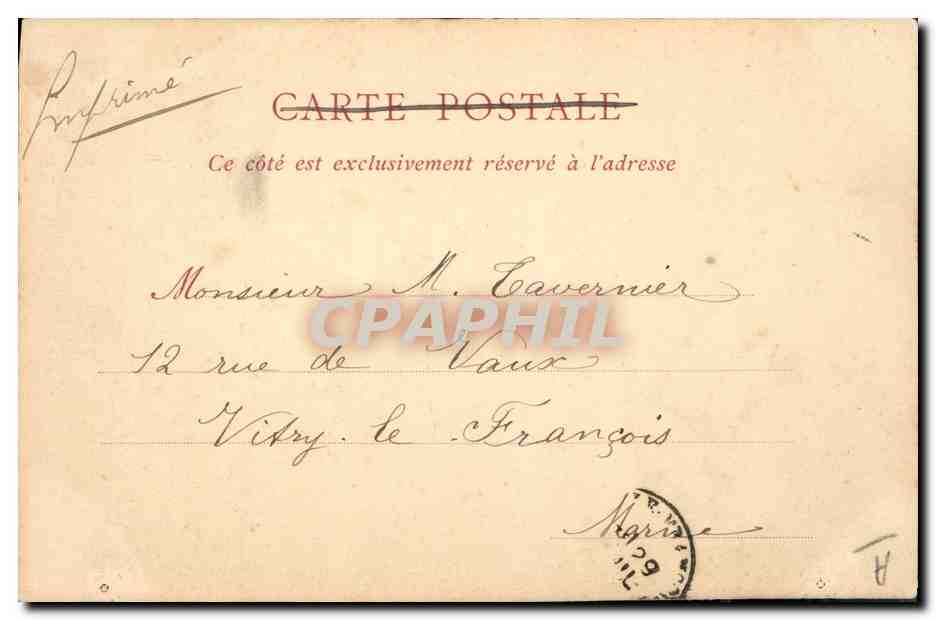 Imprimé
CARTE POSTALE
Ce côté est exclusivement réservé à l'adresse
Monsieur M. Tavernier
CPAPHIL
12 rue de Vaux
Vitry-le-François
Marne
29
A